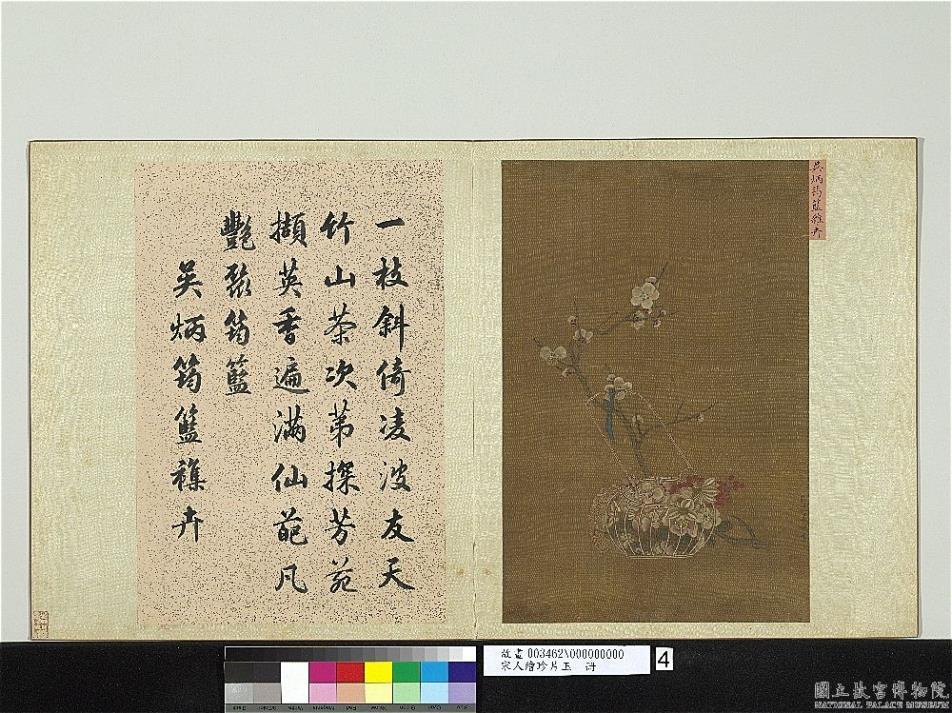 吳炳筠籃雜卉
一枝斜倚凌波友天
竹山茶次苐探芳菀
擷英香遍滿仙葩凡
豔聚筠籃
吳炳筠籃襍卉
故畫003462N000000000
宋人繪珍片玉 冊
4
國立故宮博物院
NATIONAL PALACE MUSEUM